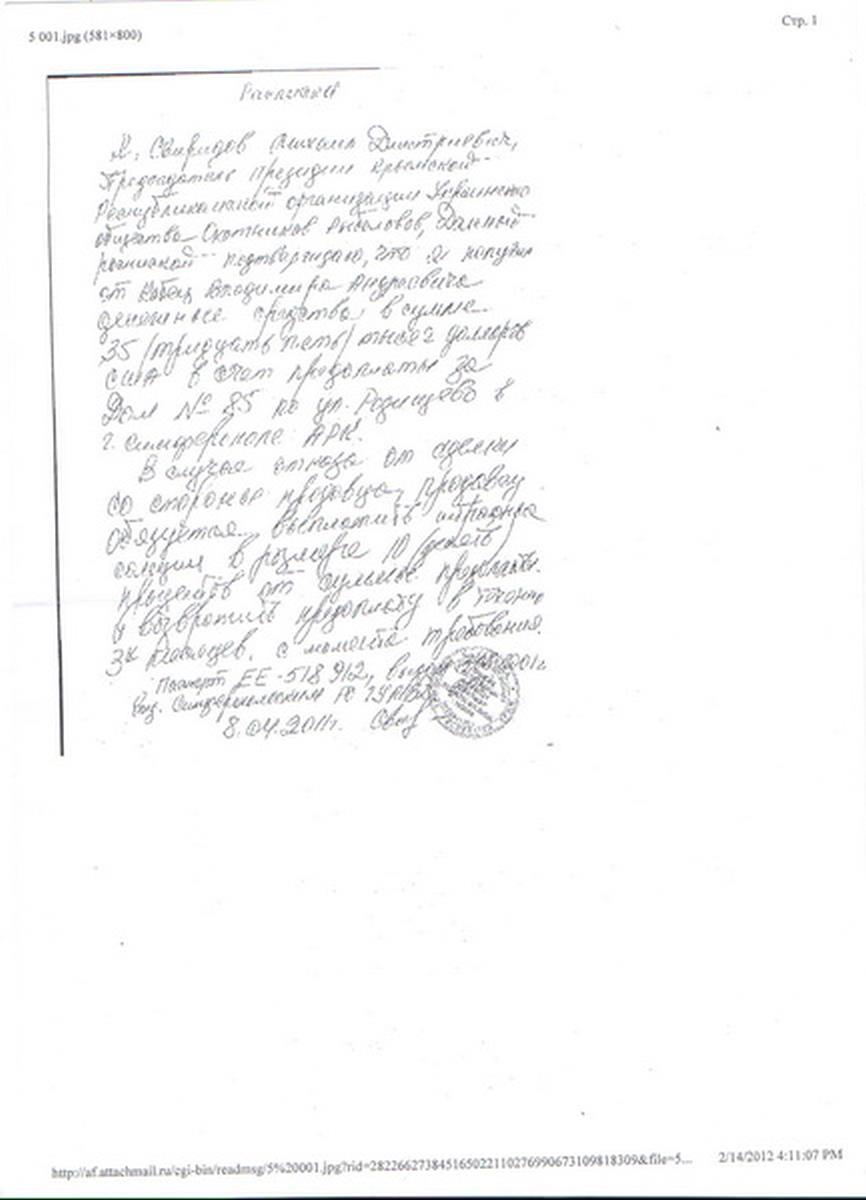 5 001.jpg (581×800)
Стр. 1
Расписка
Я, Свиридов Михаил Дмитриевич,
Председатель президии Крымской
Республиканской организации Украинско
общества Охотников Рыболовов, Данной
распиской подтверждаю, что я получил
от Владимира Андреевича
денежные средства в сумме
35 (тридцать пять) тысяч долларов
США в счет предоплаты за
Дом № 85 по ул. в
г. Симферополе АРК.
В случае отказа от сделки
со стороны продавца, продавец
обязуется выплатить штрафные
санкции в размере 10 (десять)
процентов от суммы предоплаты
и возвратить предоплату в течении
3х месяцев, с момента требования.
Паспорт ЕЕ-518912,
выд. Симферопольским РО
8.04.2011г.
http://af.attachmail.ru/cgi-bin/readmsg/5%20001.jpg?rid=282266273845165022110276990673109818309&file=5...
2/14/2012 4:11:07 PM